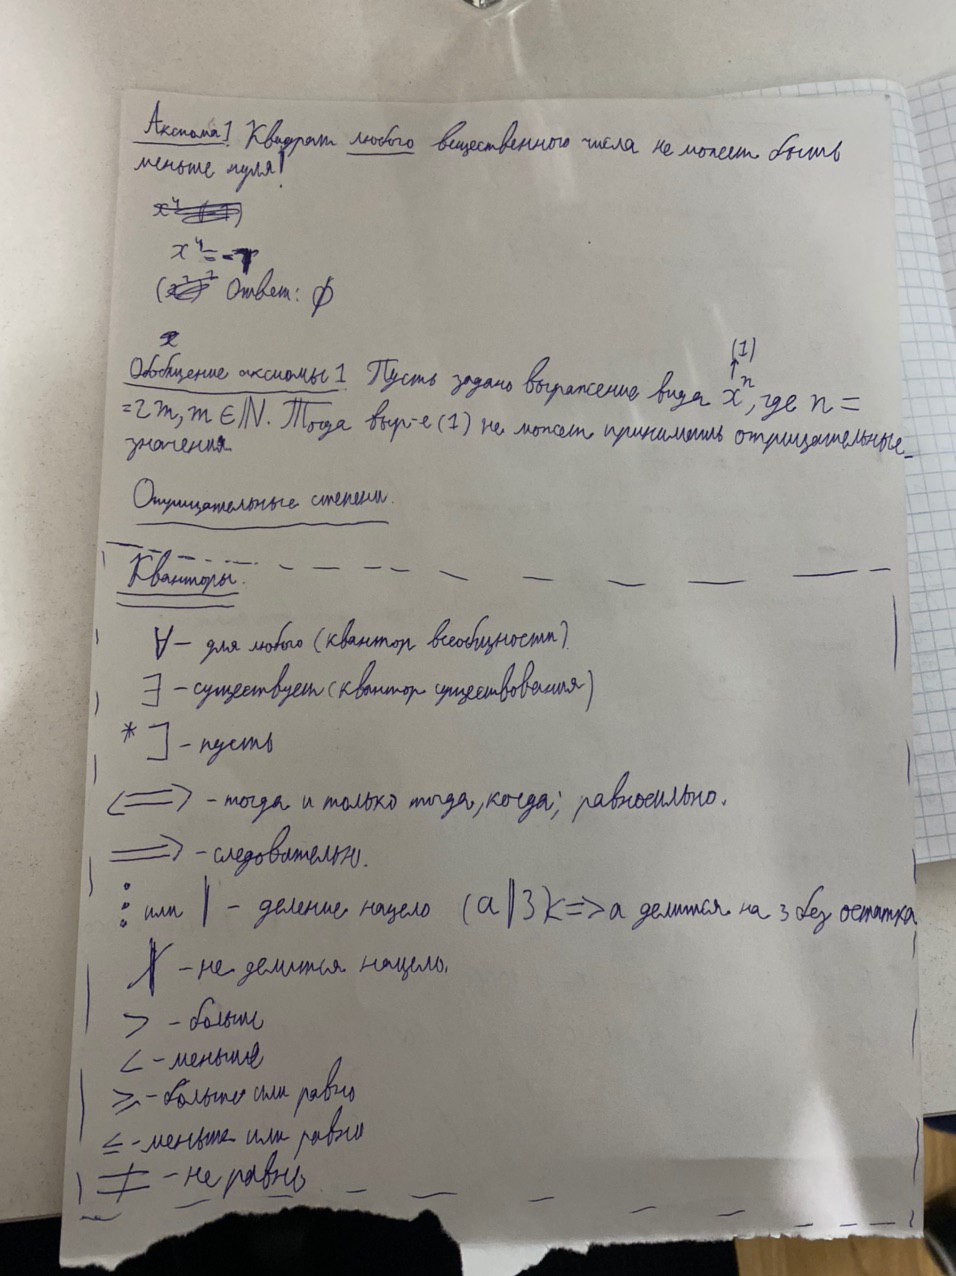 Аксиома 1 Квадрат любого вещественного числа не может быть
меньше нуля!
x⁴ = -1
Ответ: ∅
x
(1)
Обобщение аксиомы 1. Пусть задано выражение вида xⁿ, где n =
= 2m, m ∈ ℕ. Тогда выр-е (1) не может принимать отрицательные
значения.
Отрицательные степени.
Кванторы.
∀ – для любого (квантор всеобщности)
∃ – существует (квантор существования)
* ] – пусть
<=> – тогда и только тогда, когда; равносильно.
=> – следовательно.
⋮ или | – деление нацело (a|3) <=> a делится на 3 без остатка
∤ – не делится нацело.
> – больше
< – меньше
≥ – больше или равно
≤ – меньше или равно
≠ – не равно